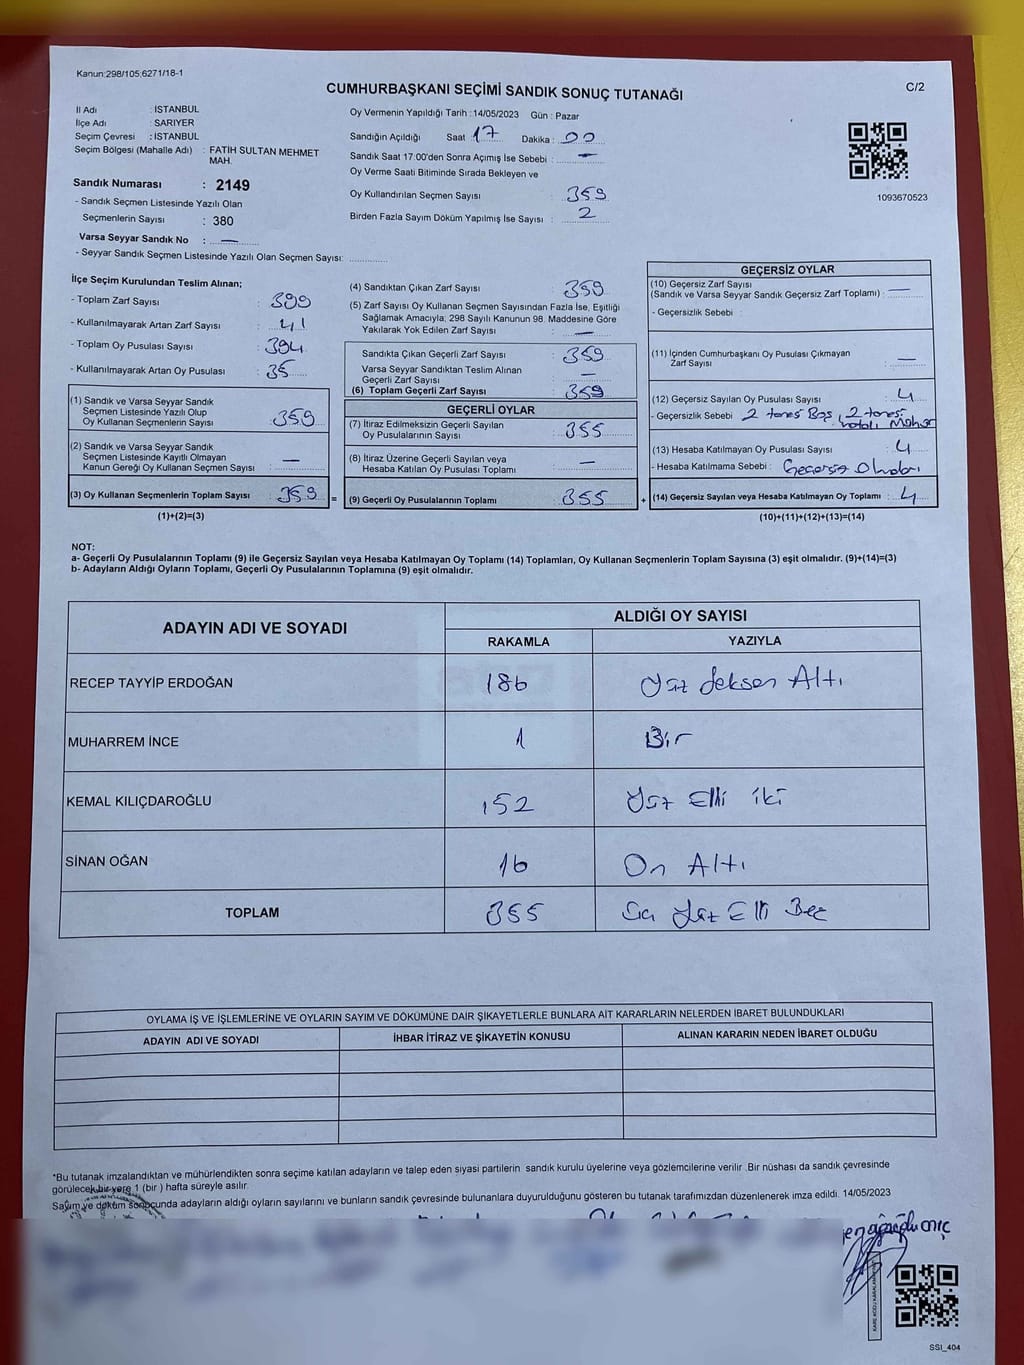 Kanun:298/105;6271/18-1
C/2
CUMHURBAŞKANI SEÇİMİ SANDIK SONUÇ TUTANAĞI
İl Adı : İSTANBUL
İlçe Adı : SARIYER
Seçim Çevresi : İSTANBUL
Seçim Bölgesi (Mahalle Adı) : FATİH SULTAN MEHMET
MAH.
Sandık Numarası : 2149
- Sandık Seçmen Listesinde Yazılı Olan
Seçmenlerin Sayısı : 380
Varsa Seyyar Sandık No : —
- Seyyar Sandık Seçmen Listesinde Yazılı Olan Seçmen Sayısı:
Oy Vermenin Yapıldığı Tarih : 14/05/2023 Gün : Pazar
Sandığın Açıldığı Saat : 17 Dakika : 00
Sandık Saat 17:00'den Sonra Açımış İse Sebebi : —
Oy Verme Saati Bitiminde Sırada Bekleyen ve
Oy Kullandırılan Seçmen Sayısı : 359
Birden Fazla Sayım Döküm Yapılmış İse Sayısı : 2
1093670523
İlçe Seçim Kurulundan Teslim Alınan;
- Toplam Zarf Sayısı : 399
- Kullanılmayarak Artan Zarf Sayısı : 41
- Toplam Oy Pusulası Sayısı : 394
- Kullanılmayarak Artan Oy Pusulası : 35
(1) Sandık ve Varsa Seyyar Sandık
Seçmen Listesinde Yazılı Olup
Oy Kullanan Seçmenlerin Sayısı : 359
(2) Sandık ve Varsa Seyyar Sandık
Seçmen Listesinde Kayıtlı Olmayan
Kanun Gereği Oy Kullanan Seçmen Sayısı : —
(3) Oy Kullanan Seçmenlerin Toplam Sayısı : 359 =
(1)+(2)=(3)
(4) Sandıktan Çıkan Zarf Sayısı : 359
(5) Zarf Sayısı Oy Kullanan Seçmen Sayısından Fazla İse, Eşitliği
Sağlamak Amacıyla; 298 Sayılı Kanunun 98. Maddesine Göre
Yakılarak Yok Edilen Zarf Sayısı : —
Sandıkta Çıkan Geçerli Zarf Sayısı : 359
Varsa Seyyar Sandıktan Teslim Alınan
Geçerli Zarf Sayısı : —
(6) Toplam Geçerli Zarf Sayısı : 359
GEÇERLİ OYLAR
(7) İtiraz Edilmeksizin Geçerli Sayılan
Oy Pusulalarının Sayısı : 355
(8) İtiraz Üzerine Geçerli Sayılan veya
Hesaba Katılan Oy Pusulası Toplamı : —
(9) Geçerli Oy Pusulalarının Toplamı : 355 +
GEÇERSİZ OYLAR
(10) Geçersiz Zarf Sayısı
(Sandık ve Varsa Seyyar Sandık Geçersiz Zarf Toplamı) : —
- Geçersizlik Sebebi :
(11) İçinden Cumhurbaşkanı Oy Pusulası Çıkmayan
Zarf Sayısı : —
(12) Geçersiz Sayılan Oy Pusulası Sayısı : 4
- Geçersizlik Sebebi : 2 tanesi Boş, 2 tanesi
hatalı Mühür
(13) Hesaba Katılmayan Oy Pusulası Sayısı : 4
- Hesaba Katılmama Sebebi : Geçersiz
(14) Geçersiz Sayılan veya Hesaba Katılmayan Oy Toplamı : 4
(10)+(11)+(12)+(13)=(14)
NOT:
a- Geçerli Oy Pusulalarının Toplamı (9) ile Geçersiz Sayılan veya Hesaba Katılmayan Oy Toplamı (14) Toplamları, Oy Kullanan Seçmenlerin Toplam Sayısına (3) eşit olmalıdır. (9)+(14)=(3)
b- Adayların Aldığı Oyların Toplamı, Geçerli Oy Pusulalarının Toplamına (9) eşit olmalıdır.
ADAYIN ADI VE SOYADI
ALDIĞI OY SAYISI
RAKAMLA YAZIYLA
RECEP TAYYİP ERDOĞAN 186 Yüz Seksen Altı
MUHARREM İNCE 1 Bir
KEMAL KILIÇDAROĞLU 152 Yüz Elli iki
SİNAN OĞAN 16 On Altı
TOPLAM 355 Üç Yüz Elli Beş
OYLAMA İŞ VE İŞLEMLERİNE VE OYLARIN SAYIM VE DÖKÜMÜNE DAİR ŞİKAYETLERLE BUNLARA AİT KARARLARIN NELERDEN İBARET BULUNDUKLARI
ADAYIN ADI VE SOYADI İHBAR İTİRAZ VE ŞİKAYETİN KONUSU ALINAN KARARIN NEDEN İBARET OLDUĞU
*Bu tutanak imzalandıktan ve mühürlendikten sonra seçime katılan adayların ve talep eden siyasi partilerin sandık kurulu üyelerine veya gözlemcilerine verilir .Bir nüshası da sandık çevresinde
görülecek bir yere 1 (bir ) hafta süreyle asılır.
Sayım ve döküm sonucunda adayların aldığı oyların sayılarını ve bunların sandık çevresinde bulunanlara duyurulduğunu gösteren bu tutanak tarafımızdan düzenlenerek imza edildi. 14/05/2023
SSI_404